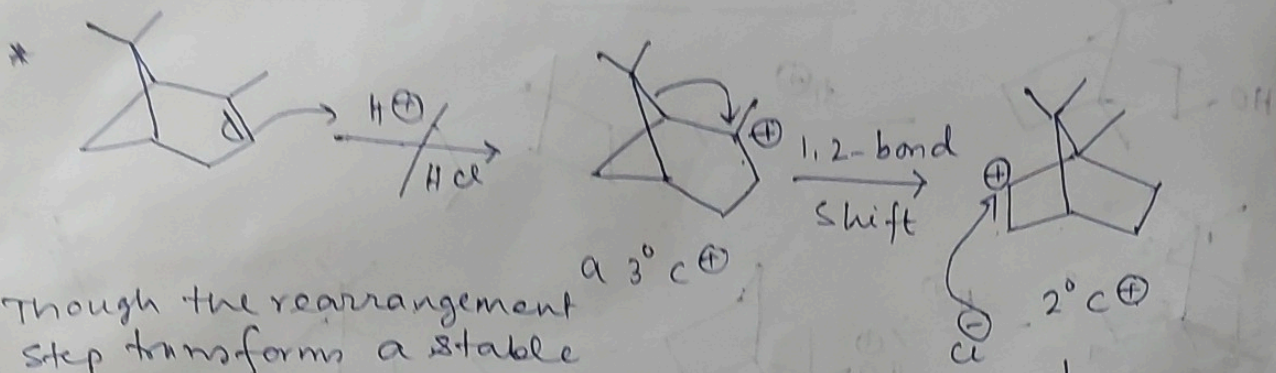 *
H⊕
HCl
⊕
1,2-bond
shift
⊕
a 3° C⊕
2° C⊕
⊖
Cl
Though the rearrangement
step transforms a stable